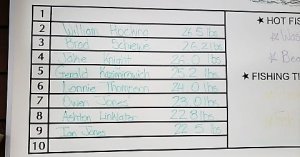 1
2 William Hocking 26.5 lbs
3 Brad Scheuve 26.2 lbs
4 Jake Knight 26.0 lbs
5 Gerald 25.2 lbs
6 Lonnie Thomson 24.0 lbs
7 Owen Jones 23.0 lbs
8 Ashton 22.8 lbs
9 Jan Jones 22.5 lbs
10
★ HOT FIS
★ FISHING TI